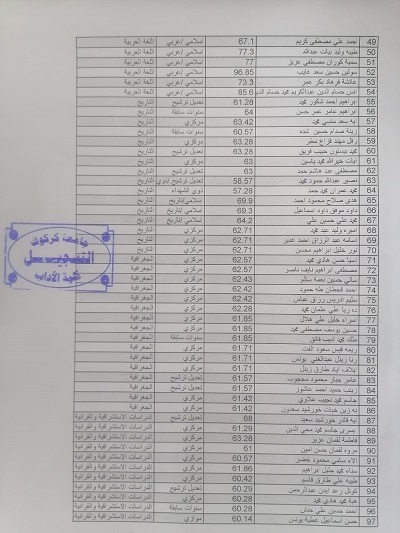 49 احمد علي مصطفى كريم 67.1 اسلامي /عربي اللغة العربية
50 طيبه وليد بيات عبدالله 77.3 اسلامي /عربي اللغة العربية
51 سمية كوران مصطفى عزيز 77 اسلامي /عربي اللغة العربية
52 سولين حسين سعد غايب 96.85 اسلامي /عربي اللغة العربية
53 عائشة فرهاد بكر عمر 73.3 اسلامي /عربي اللغة العربية
54 انس حسام الدين عبدالكريم محمد حسام الدين 85.6 اسلامي /عربي اللغة العربية
55 ابراهيم احمد شكور محمد 61.28 تعديل ترشيح التاريخ
56 ابراهيم عامر عمر حسن 64 سنوات سابقة التاريخ
57 ايه سعد منسي محمد 63.42 مركزي التاريخ
58 زينة صدام حسين 60.57 سنوات سابقة التاريخ
59 مهند فزاع مطر 63.28 مركزي التاريخ
60 محمد حبيب فريق 63.28 تعديل ترشيح التاريخ
61 ايات خيرالله محمد ياسين 63 مركزي التاريخ
62 مصطفى عبد هاشم حمد 63 تعديل ترشيح التاريخ
63 نصير عبدالله حمود محمد 58.57 تعديل ترشيح التاريخ
64 محمد عمران محمد حمد 57.28 ذوي الشهداء التاريخ
65 هدى صلاح محمود احمد 69.9 اسلامي/تاريخ التاريخ
66 داود موفق داود اسماعيل 69.3 اسلامي/تاريخ التاريخ
67 محمد علي حسين علي 64.2 اسلامي/تاريخ التاريخ
68 اميره وليد عبد محمد 62.71 مركزي الجغرافية
69 اسامه عبد الرزاق احمد غدير 62.71 مركزي الجغرافية
70 نور خليل ابراهيم محسن 62.71 مركزي الجغرافية
71 اسيا حسن هادي محمد 62.57 مركزي الجغرافية
72 مصطفى ابراهيم نايف ناصر 62.57 مركزي الجغرافية
73 سالي حسين نعمة سالم 62.43 مركزي الجغرافية
74 احمد قحطان طه حمود 62.42 مركزي الجغرافية
75 سليم ادريس رزاق عباس 62.42 مركزي الجغرافية
76 علي عثمان محمد 62.28 مركزي الجغرافية
77 اسراء خليل علي هلال 61.85 مركزي الجغرافية
78 حسين يوسف مصطفى محمد 61.85 مركزي الجغرافية
79 ملك محمد اديب فائق 61.85 سنوات سابقة الجغرافية
80 ريمه قيس سعود 61.71 مركزي الجغرافية
81 رنا زينل عبدالغني يونس 61.71 مركزي الجغرافية
82 ايلاف اياد طارق زينل 61.71 مركزي الجغرافية
83 عامر جبار محمود محجوب 61.57 تعديل ترشيح الجغرافية
84 زينب حميد احمد عاشور 61.57 تعديل ترشيح الجغرافية
85 جاسم محمد نجيب علاوي 61.42 مركزي الجغرافية
86 نه زين خبات خورشيد سعدون 61.42 مركزي الجغرافية
87 ايه قادر خورشيد سعيد 68 تعديل ترشيح الدراسات الاستشراقية والقرانية
88 يسرى جاسم محمد محي الدين 61.29 مركزي الدراسات الاستشراقية والقرانية
89 فاطمة لقمان عزيز 63.28 مركزي الدراسات الاستشراقية والقرانية
90 مروه لقمان حسن امين 61 مركزي الدراسات الاستشراقية والقرانية
91 الاء سامي محمود خضر 60.57 مركزي الدراسات الاستشراقية والقرانية
92 سناء محمد جليل ابراهيم 61.86 سنوات سابقة الدراسات الاستشراقية والقرانية
93 طيبه علي طارق قاسم 60.42 مركزي الدراسات الاستشراقية والقرانية
94 كوثر رعد عبدالرحمن 60.29 تعديل ترشيح الدراسات الاستشراقية والقرانية
95 هبة محمد هادي محمد 60.28 مركزي الدراسات الاستشراقية والقرانية
96 احمد حسين علي 60.28 مركزي الدراسات الاستشراقية والقرانية
97 حسن اسماعيل عطية يونس 60.14 موازي الدراسات الاستشراقية والقرانية
جامعة كركوك
التسجيل
كلية الآداب